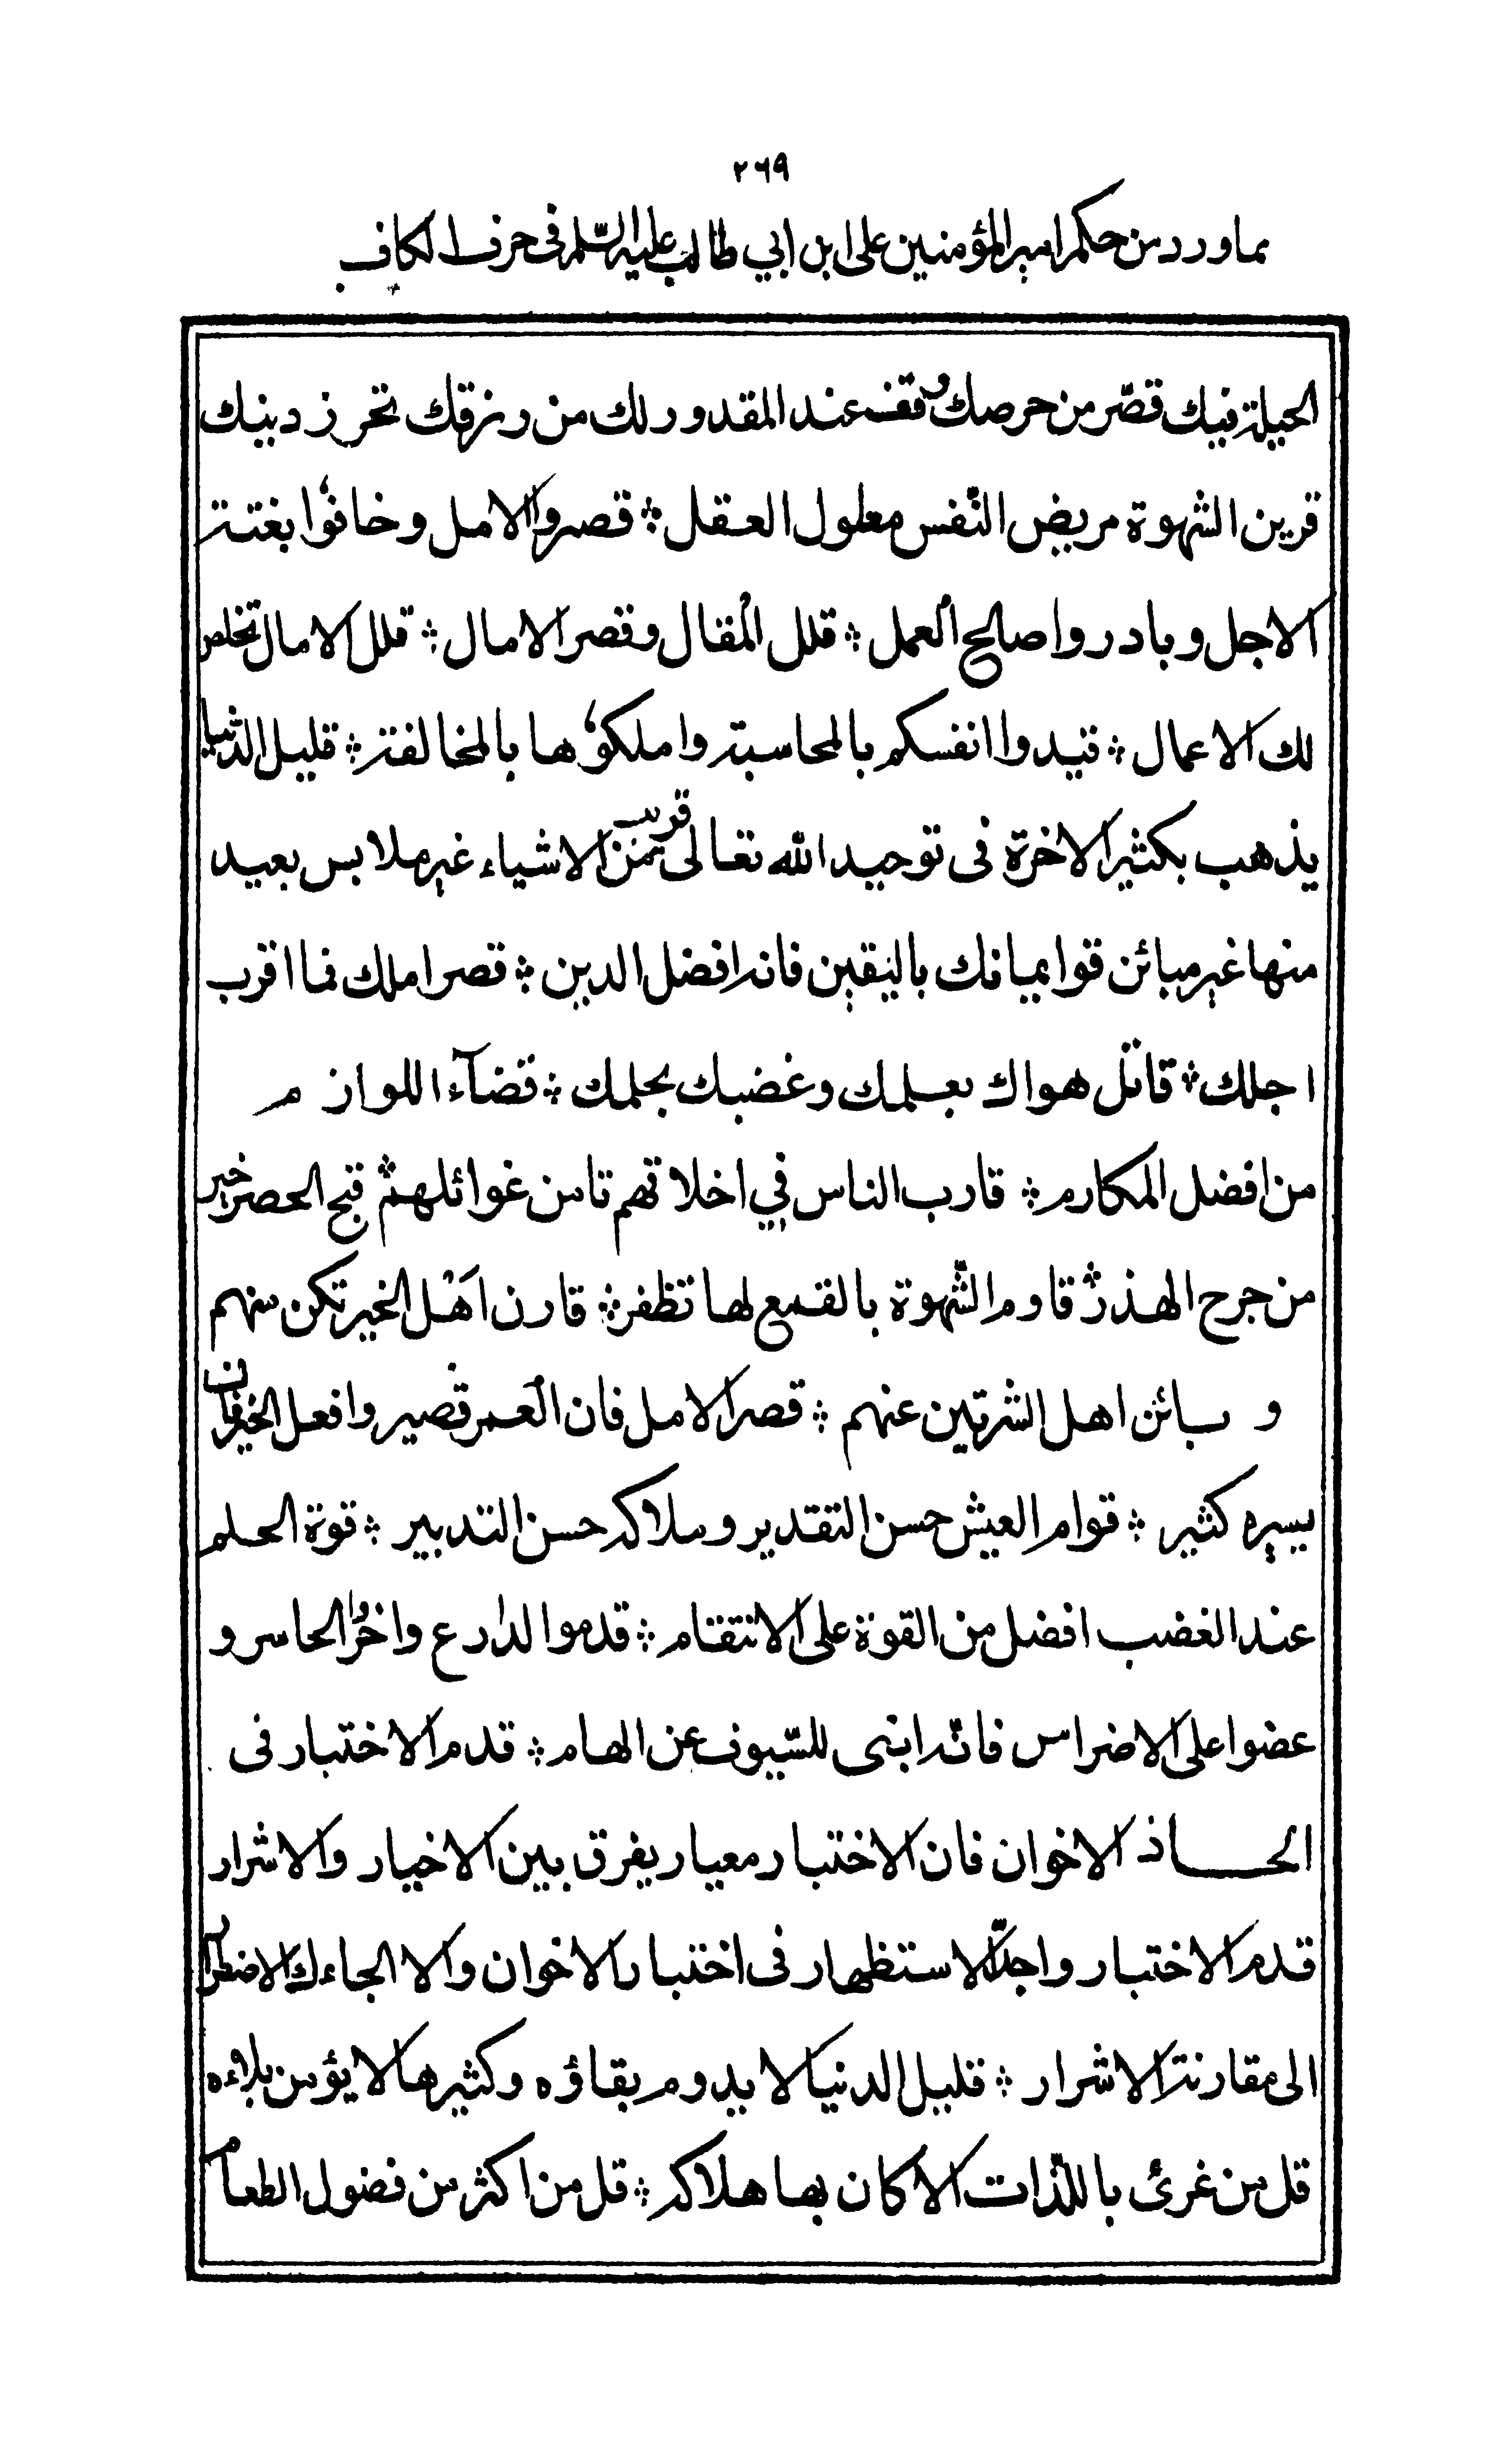 ٢٦٩
مما ورد من حكم امير المؤمنين على ابن ابي طالب عليه السّلم فى حرف الكاف
الحيلة فيك قصّر من حرصك وقف عند المقدور لك من رزقك تحرز دينك
قرين الشهوة مريض النّفس معلول العقل ❊ قصروا الامل وخافوا بغتة
الاجل وبادروا صالح العمل ❊ قلل المقال وقصر الامال ❊ قلل الامال تخلص
لك الاعمال ❊ قيدوا انفسكم بالمحاسبة واملكوها بالمخالفة ❊ قليل الدّنيا
يذهب بكثير الاخرة فى توحيد الله تعالى قريب من الاشياء غير ملابس بعيد
منها غير مبائن قوا يمانك باليقين فانه افضل الدين ❊ قصر املك فما اقرب
اجلك ❊ قاتل هواك بعلمك وغضبك بحلمك ❊ قضآء اللوازم
من افضل المكارم ❊ قارب الناس في اخلاقهم تامن غوائلهم ❊ قبح الحصر خير
من جرح الهذر ❊ قاوم الشّهوة بالقمع لها تظفر ❊ قارن اهل الخير تكن منهم
و بائن اهل الشر تبن عنهم ❊ قصر الامل فان العمر قصير وافعل الخير فان
يسيره كثير ❊ قوام العيش حسن التقدير وملاكه حسن التدبير ❊ قوة الحلم
عند الغضب افضل من القوة على الانتقام ❊ قدموا الدارع واخّروا الحاسر و
عضوا على الاضراس فانّه انبى للسّيوف عن الهام ❊ قدم الاختبار فى
اتخاذ الاخوان فان الاختبار معيار يفرق بين الاخيار والاشرار
قدم الاختبار واجدّ الاستظهار فى اختبار الاخوان والا الجاءك الاضطرار
الى مقارنة الاشرار ❊ قليل الدنيا لا يدوم بقاؤه وكثيرها لا يؤمن بلاءه
قل من غرئ باللّذات الا كان بها هلاكه ❊ قل من اكثر من فضول الطعام